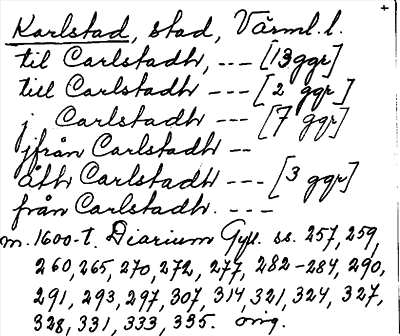 Karlstad, stad, Värml. l.
til Carlstadh, --- [13 ggr]
till Carlstadh --- [2 ggr]
j Carlstadh --- [7 ggr]
jfrån Carlstadh --
åth Carlstadh --- [3 ggr]
från Carlstadh. ---
m. 1600-t. Diarium Gyll. ss. 257, 259,
260, 265, 270, 272, 277, 282-284, 290,
291, 293, 297, 307, 314, 321, 324, 327,
328, 331, 333, 335. orig.